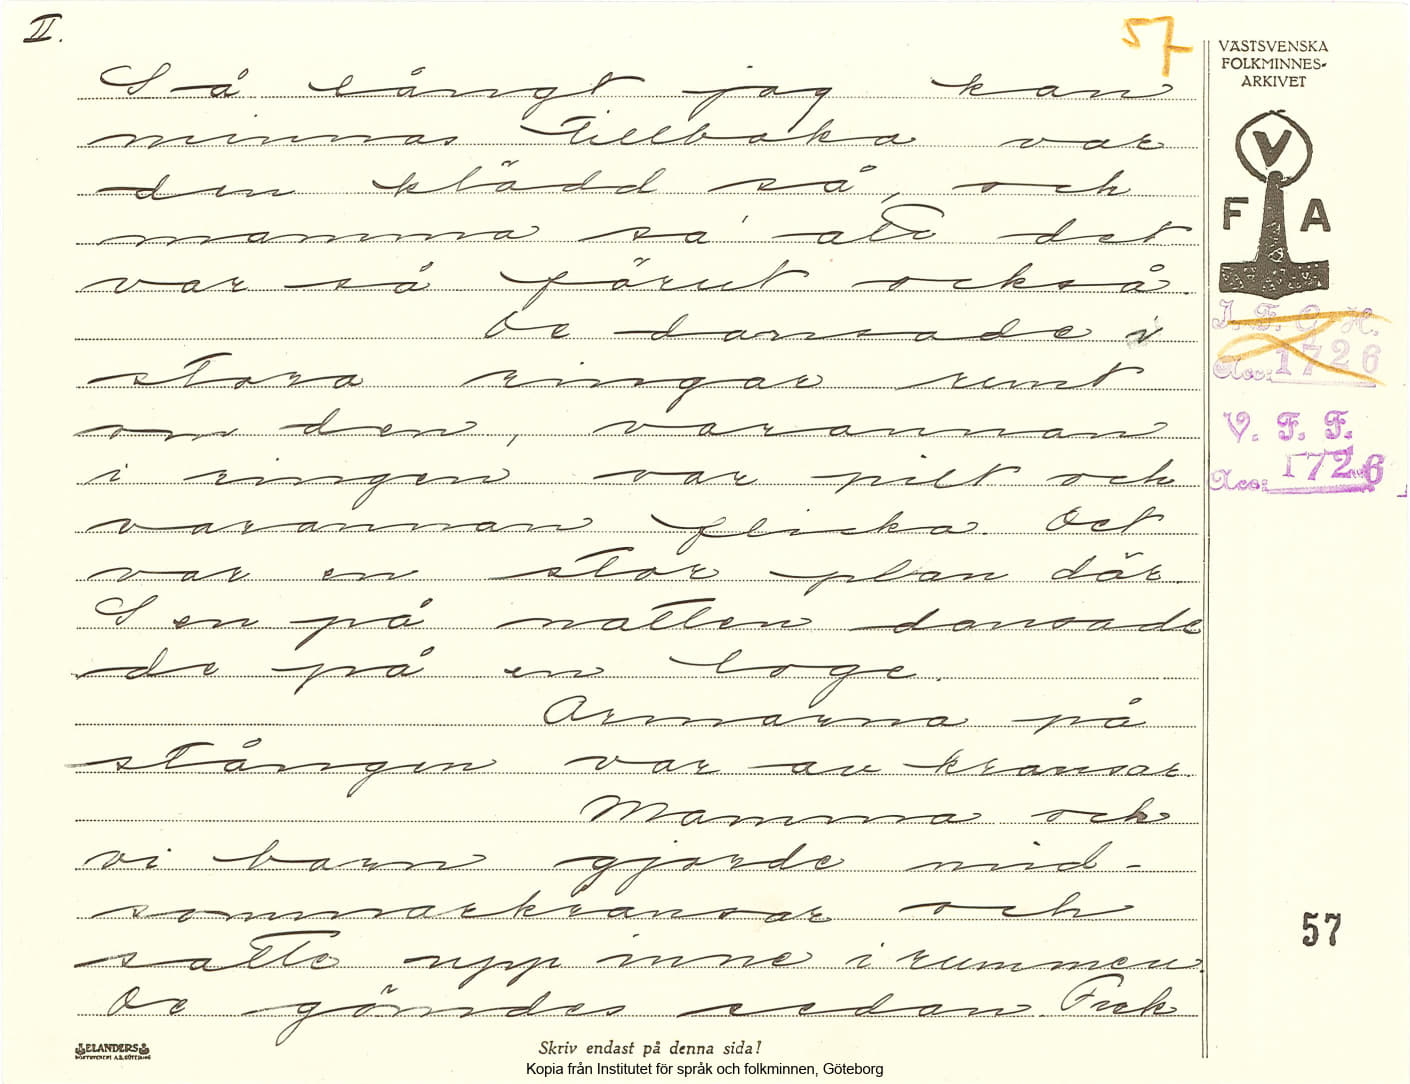 II.
57
Så långt jag kan
minnas tillbaka var
den klädd så, och
mamma sa' att det
var så förut också.
De dansade i
stora ringar runt
om den, varannan
i ringen var pilt och
varannan flicka. Det
var en stor plan där.
Sen på natten dansade
de på en loge.
Armarna på
stången var av kransar.
Mamma och
vi barn gjorde mid-
sommarkransar och
satte upp inne i rummen.
De gömdes sedan. Fick
VÄSTSVENSKA
FOLKMINNES-
ARKIVET
V
F A
I. F. G. H.
Acc: 1726
V. F. F.
Acc: 1726
57
ELANDERS
Skriv endast på denna sida!
Kopia från Institutet för språk och folkminnen, Göteborg